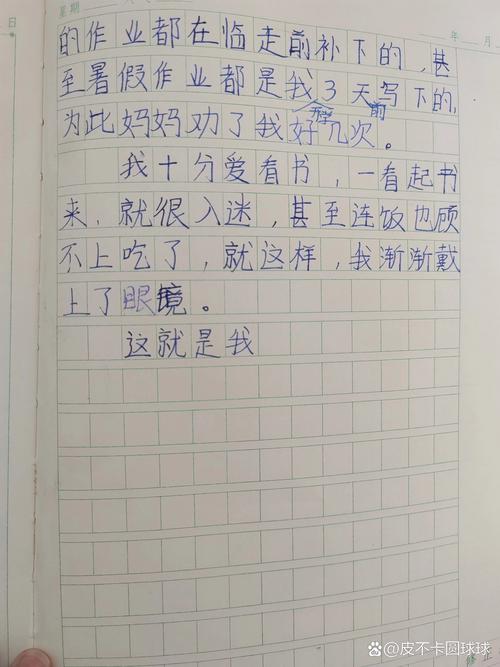 星期
日
年 月
的作业都在临走前补下的，甚
至暑假作业都是我3天写下的，
开学 前
为此妈妈劝了我好几次。
我十分爱看书，一看起书
来，就很入迷，甚至连饭也顾
不上吃了，就这样，我渐渐戴
上了眼镜。
这就是我
@皮不卡圆球球